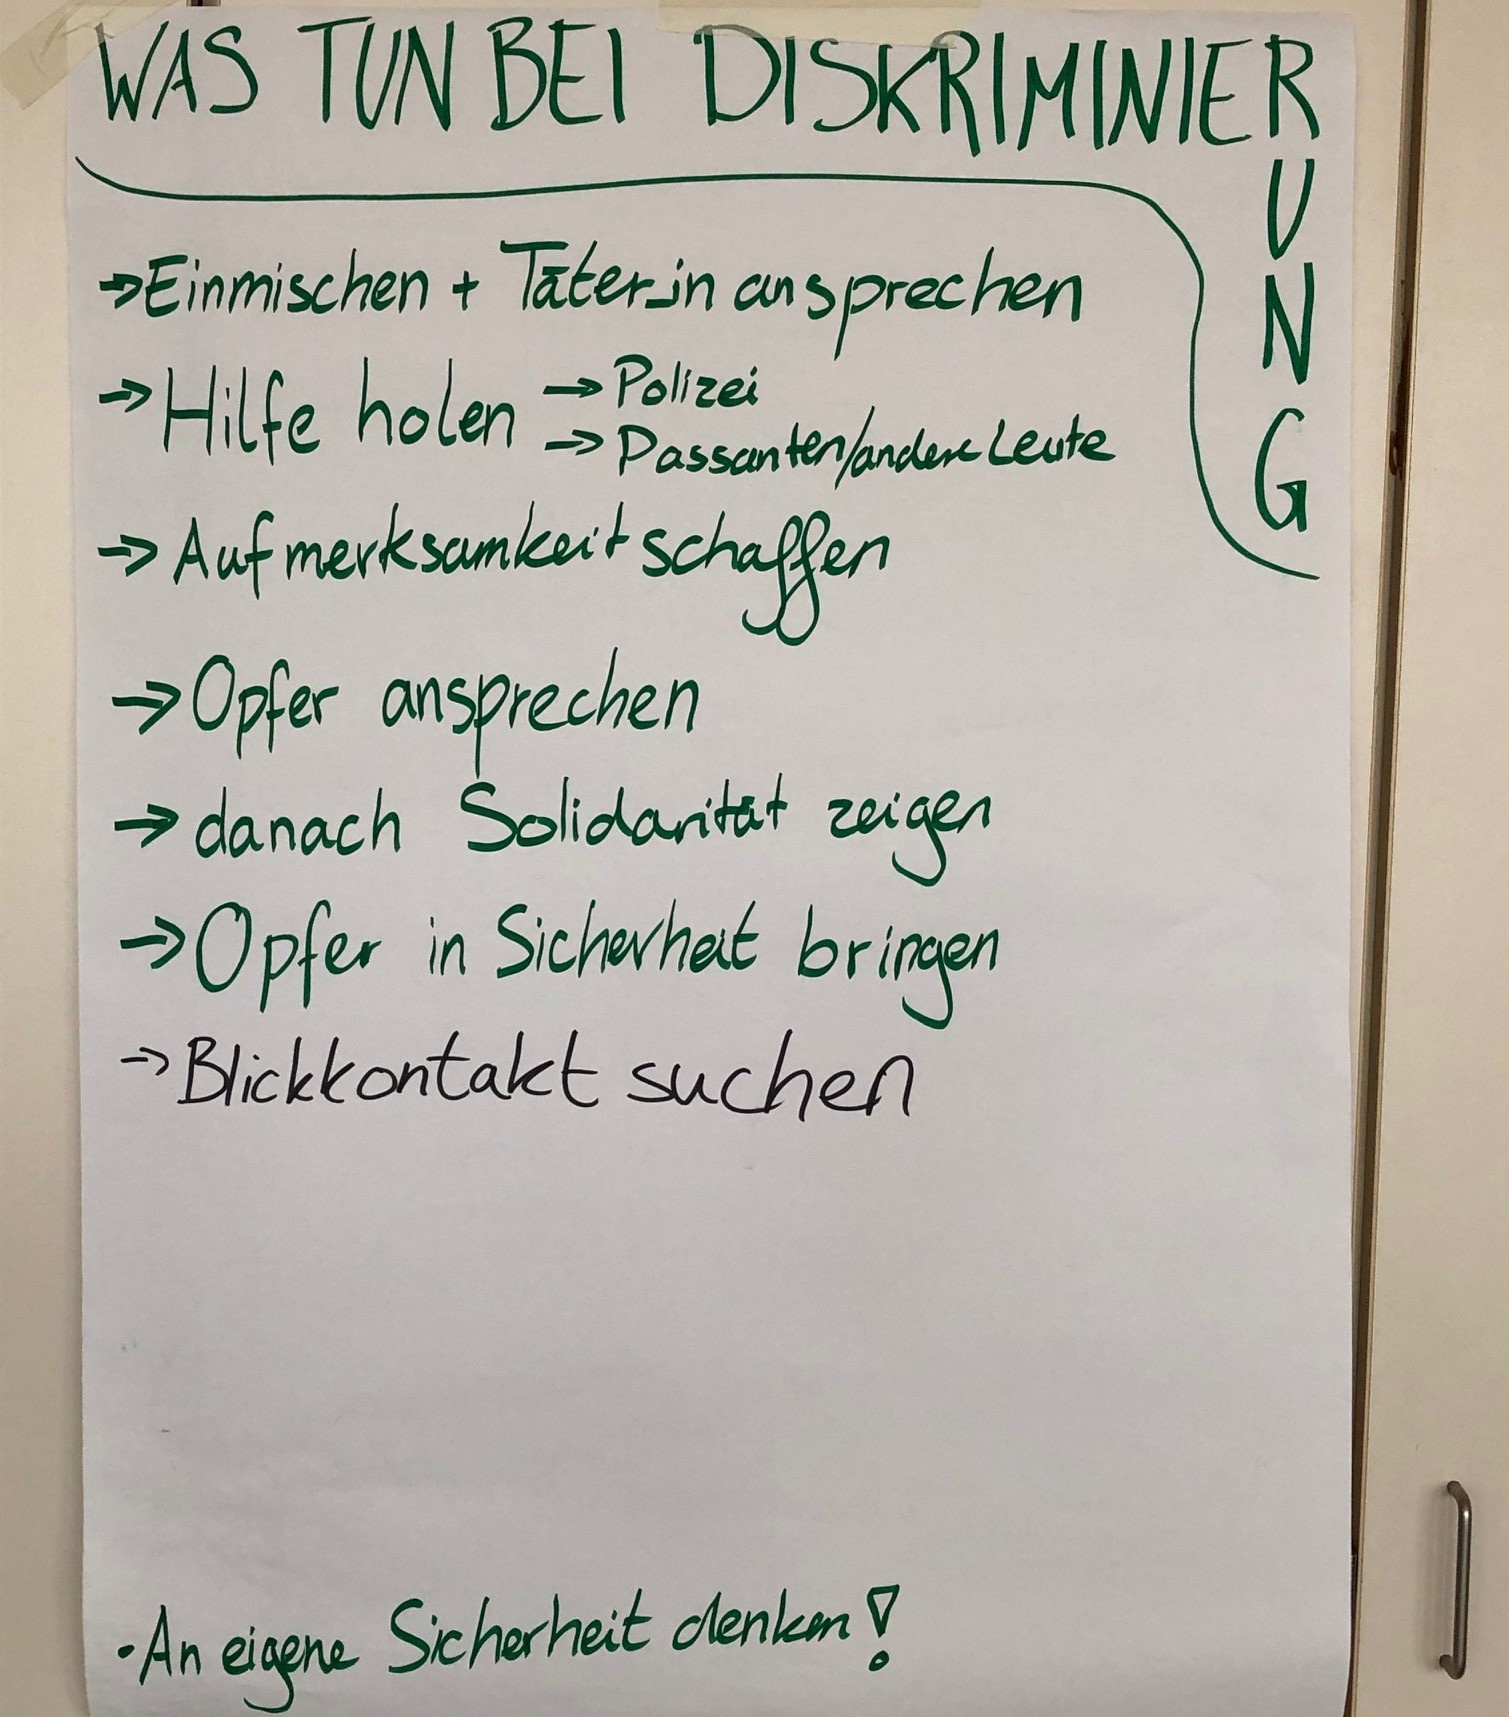 WAS TUN BEI DISKRIMINIERUNG
→ Einmischen + Täter_in ansprechen
→ Hilfe holen → Polizei
→ Passanten/andere Leute
→ Aufmerksamkeit schaffen
→ Opfer ansprechen
→ danach Solidarität zeigen
→ Opfer in Sicherheit bringen
→ Blickkontakt suchen
• An eigene Sicherheit denken!